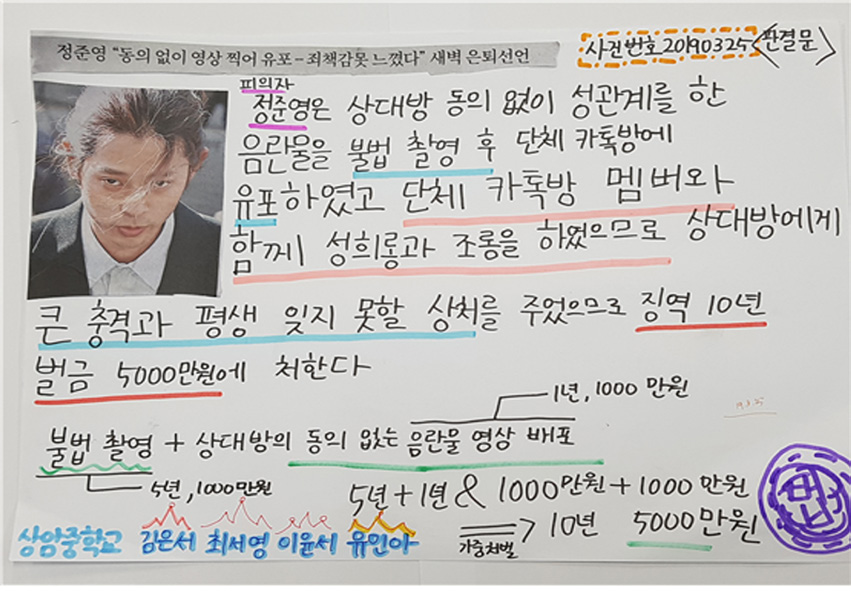 정준영 "동의 없이 영상 찍어 유포 - 죄책감 못 느꼈다" 새벽 은퇴선언
사건번호 20190325 <판결문>
피의자
정준영은 상대방 동의 없이 성관계를 한
음란물을 불법 촬영 후 단체 카톡방에
유포하였고 단체 카톡방 멤버와
함께 성희롱과 조롱을 하었으므로 상대방에게
큰 충격과 평생 잊지 못할 상처를 주었으므로 징역 10년
벌금 5000만원에 처한다
1년, 1000 만원
19.3.25
불법 촬영 + 상대방의 동의 없는 음란물 영상 배포
5년, 1000만원
5년 + 1년 & 1000만원 + 1000만원
가중처벌 > 10년 5000만원
상암중학교 김은서 최서영 이윤서 유민아